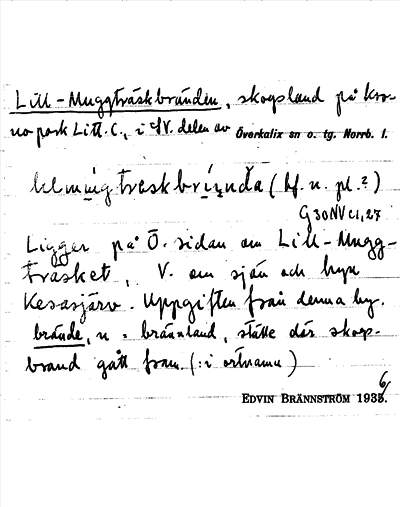 Lill-Muggträskbränden, skogsland på Kro-
nopark Litt. C., i SV. delen av Överkalix sn o. tg. Norrb. l.
(bf. n. pl.?)
G 30 NV c1, 27
Ligger på Ö. sidan om Lill-Mugg-
träsket, V. om sjön och byn
Kesasjärv. Uppgiften från denna by.
brände, n = brännland, ställe där skogs-
brand gått fram. (: i ortnamn)
EDVIN BRÄNNSTRÖM 1936.